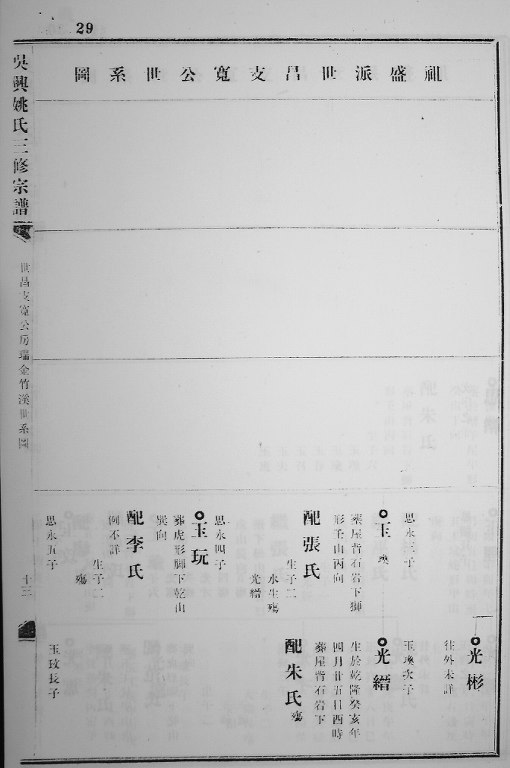 29
祖盛派世昌支寬公世系圖
吳興姚氏三修宗譜
世昌支寬公房瑞金竹溪世系圖
十三
思永三子
玉璣
葬屋背石岩下獅
形壬山丙向
配張氏
生子二
永生殤
光縉
思永四子
玉玩
葬虎形腳下乾山
巽向
配李氏
例不詳
生子二
殤
思永五子
光彬
往外未詳
玉璣次子
光縉
生於乾隆癸亥年
四月廿五日酉時
葬屋背石岩下
配朱氏
殤
玉玟長子